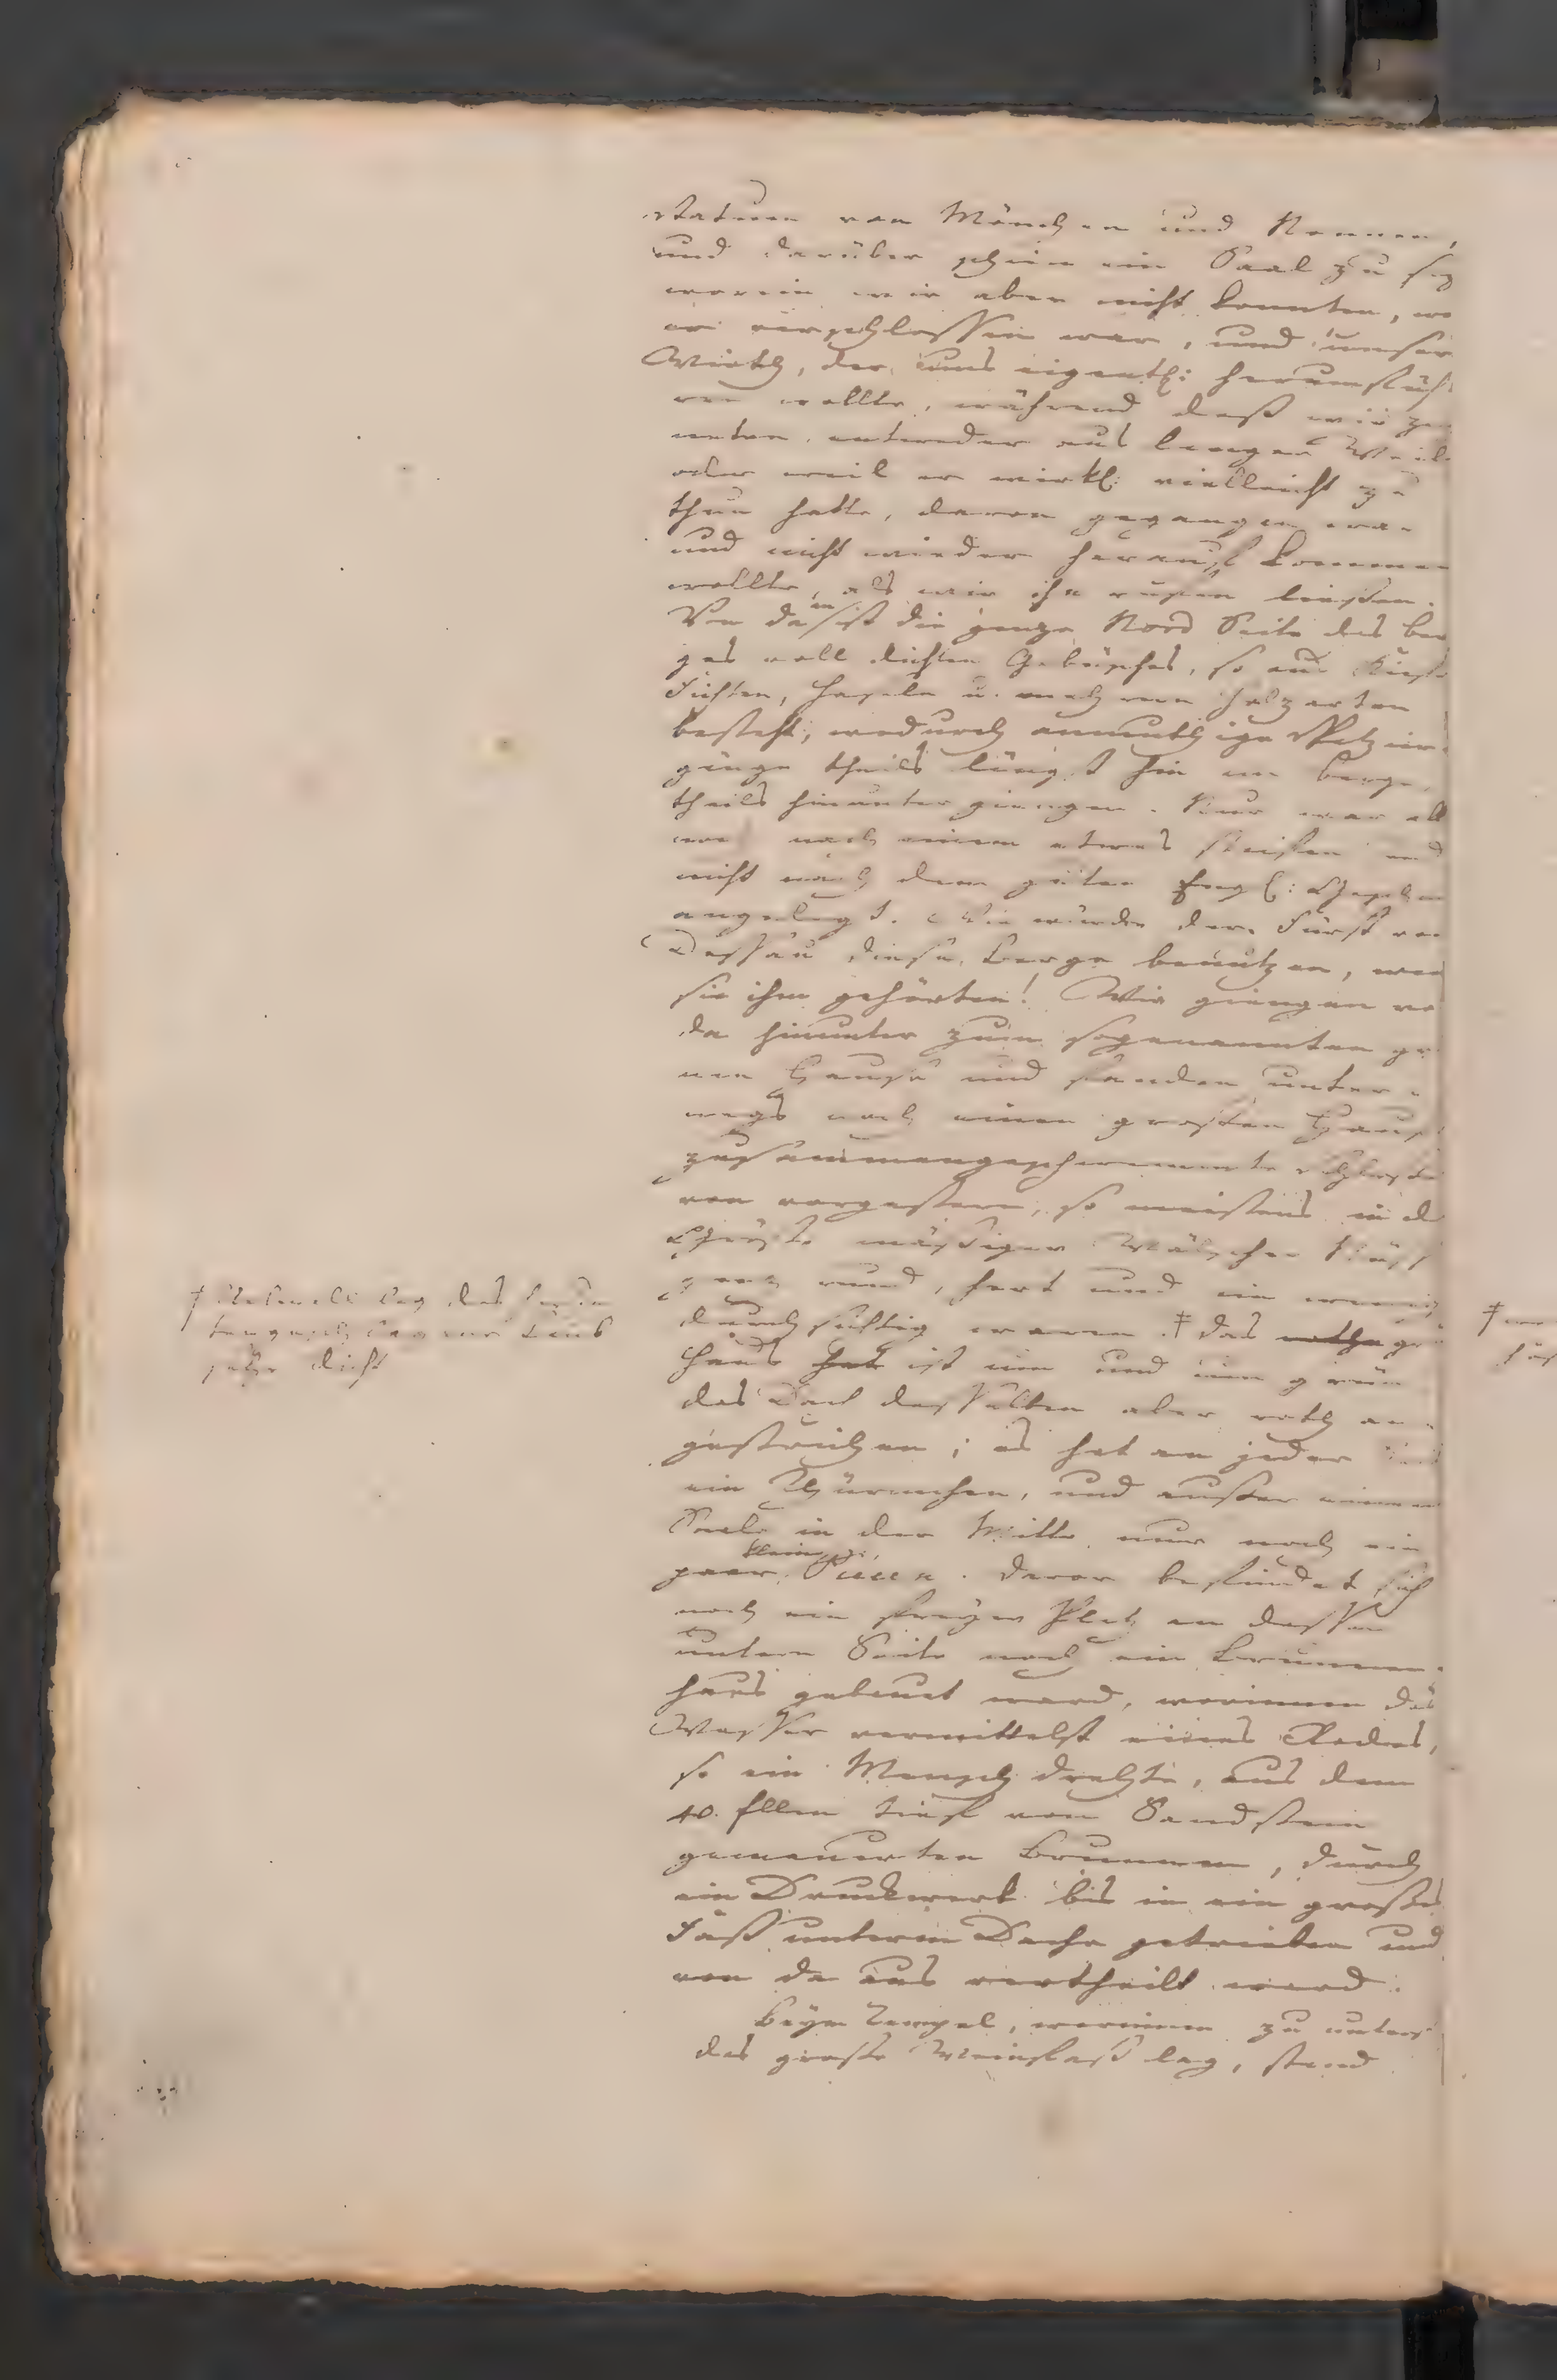 Statuen von Mönchen und Nonnen,
und darüber schien ein Saal zu sey
worein wir aber nicht konnten,
er verschlossen war, und unser
Wirth, der uns eigentl: herumfüh
ren wollte, während daß wir
entweder aus langer Weile
oder weil er wirkl: vielleicht zu
thun hatte, davon gegangen war
und nicht wieder herauf kommen
wollte, als wir ihn rufen liessen.
Von da ist die ganze Nord Seite des Ber
ges voll dichten Gebüsches, so aus
Fichten, Haseln u. mehrern Holzarten
besteht, wodurch anmuthige Spatzier
gänge theils längst hin am Berge,
theils hinunter giengen. Nur war all
noch einem etwas steifen und
nicht nach dem guten Engl:
angelegt. Wie würde der Fürst von
Dessau diese Berge benutzen, wenn
sie ihm gehörten! Wir giengen von
da hinunter zum sogenannten
nen Hause und fanden unter-
wegs noch einen grossen Hauf
zusammengeschwemmte Schlossen
von vorgestern, so meistens in der
Größe mässiger Wälscher Nüss
ganz rund, hart und ein wenig
durchsichtig waren. ‡ Das rothe
Haus hat ist um und um grün
das Dach desselben aber roth an-
gestrichen; es hat an jeder
ein Thürmchen, und ausser einem
Saale in der Mitte nur noch ein
kleine
paar. Davor befindet sich
noch ein freyer Platz an dessen
untern Seite noch ein Brunnen-
haus gebaut ward, worinnen das
Wasser vermittelst eines Rades,
so ein Mensch drehte, aus dem
40. Ellen tief von Sandstein
gemauerten Brunnen, durch
ein Druckwerk bis in ein grosses
Faß unterm Dache getrieben und
von da aus vertheilt ward.
Beym Tempel, worinnen zu unterst
das grosse Weinfass lag, stand
‡ lag das
Laub
sehr dicht